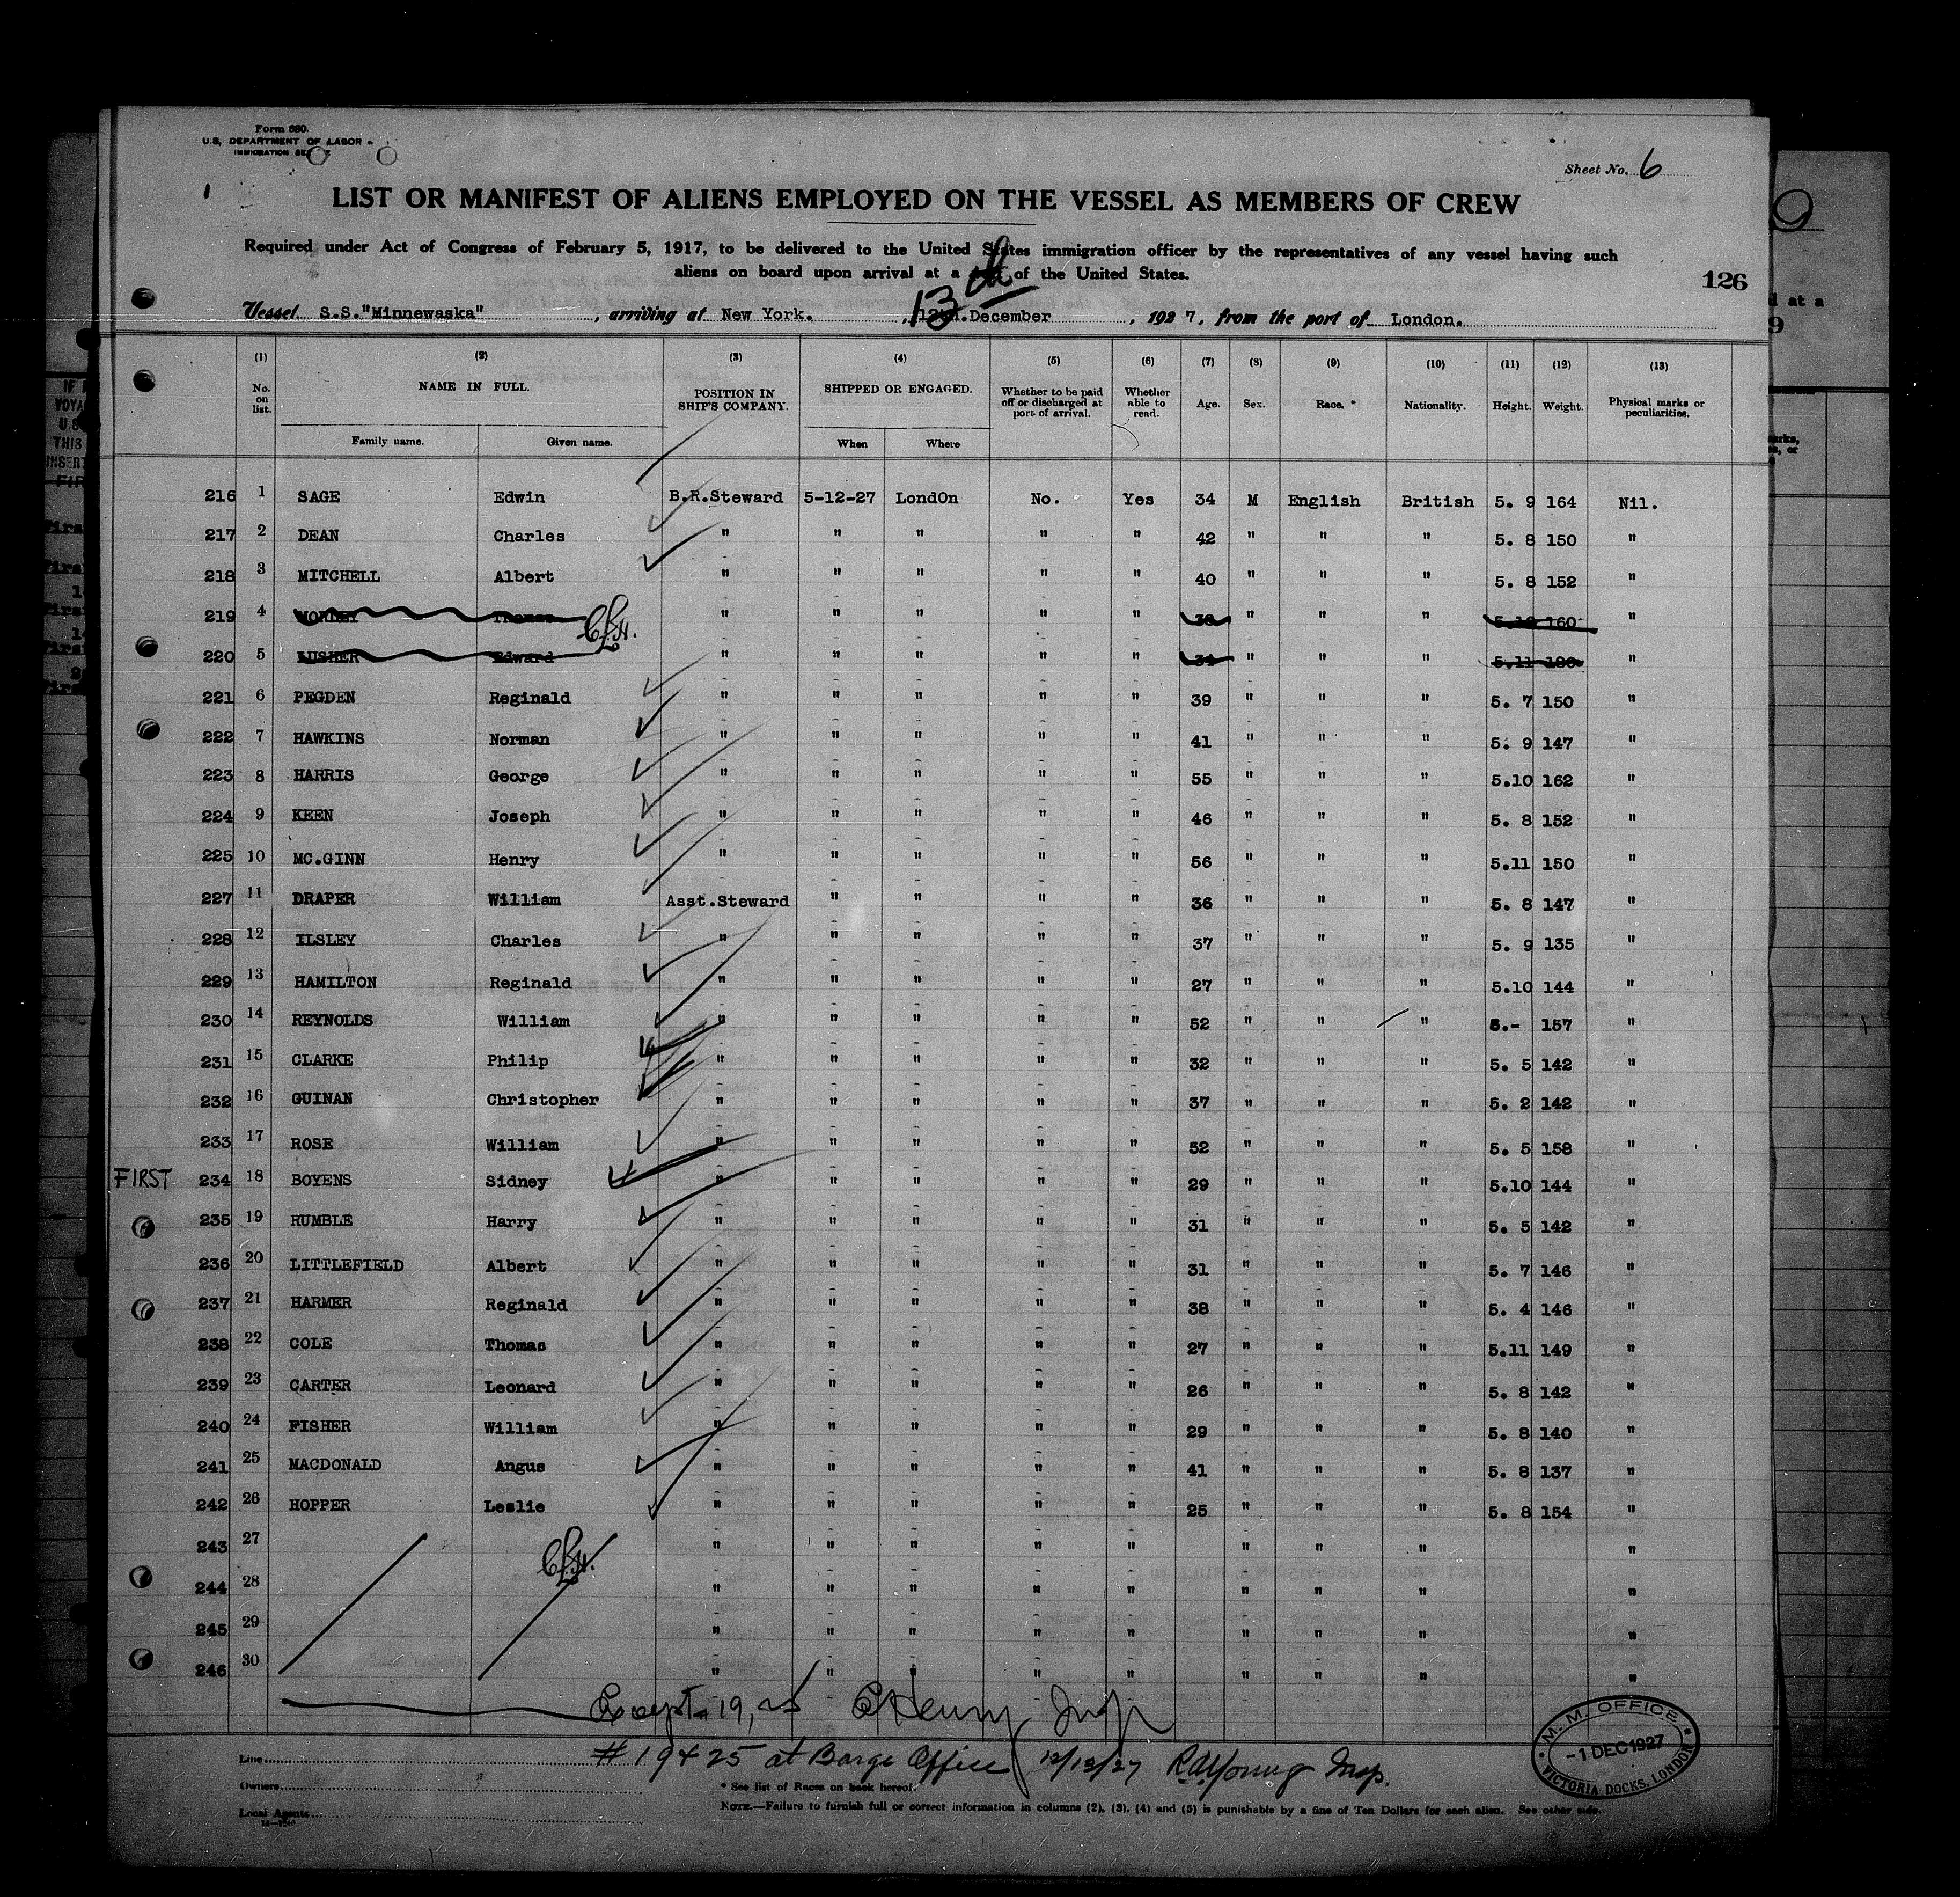 Form 680.
U.S. DEPARTMENT OF LABOR
IMMIGRATION
Sheet No. 6
LIST OR MANIFEST OF ALIENS EMPLOYED ON THE VESSEL AS MEMBERS OF CREW
Required under Act of Congress of February 5, 1917, to be delivered to the United States immigration officer by the representatives of any vessel having such
aliens on board upon arrival at a of the United States.
126
13th
Vessel S.S."Minnewaska", arriving at New York., December, 1927, from the port of London.
(1) (2) (3) (4) (5) (6) (7) (8) (9) (10) (11) (12) (13)
No. on list. NAME IN FULL. POSITION IN SHIP'S COMPANY. SHIPPED OR ENGAGED. Whether to be paid off or discharged at port of arrival. Whether able to read. Age. Sex. Race. * Nationality. Height. Weight. Physical marks or peculiarities.
Family name. Given name. When Where
216 1 SAGE Edwin B.R.Steward 5-12-27 LondOn No. Yes 34 M English British 5. 9 164 Nil.
217 2 DEAN Charles " " " " " 42 " " " 5. 8 150 "
218 3 MITCHELL Albert " " " " " 40 " " " 5. 8 152 "
219 4 MORLEY Thomas C.L.H. " " " " " " " " 160 "
220 5 LUSHER Edward " " " " " " " " 5.11 "
221 6 PEGDEN Reginald " " " " " 39 " " " 5. 7 150 "
222 7 HAWKINS Norman " " " " " 41 " " " 5. 9 147 "
223 8 HARRIS George " " " " " 55 " " " 5.10 162 "
224 9 KEEN Joseph " " " " " 46 " " " 5. 8 152 "
225 10 MC.GINN Henry " " " " " 56 " " " 5.11 150 "
227 11 DRAPER William Asst.Steward " " " " 36 " " " 5. 8 147 "
228 12 ILSLEY Charles " " " " " 37 " " " 5. 9 135 "
229 13 HAMILTON Reginald " " " " " 27 " " " 5.10 144 "
230 14 REYNOLDS William " " " " " 52 " " " 6.- 157 "
231 15 CLARKE Philip " " " " " 32 " " " 5. 5 142 "
232 16 GUINAN Christopher " " " " " 37 " " " 5. 2 142 "
233 17 ROSE William " " " " " 52 " " " 5. 5 158 "
FIRST 234 18 BOYENS Sidney " " " " " 29 " " " 5.10 144 "
235 19 RUMBLE Harry " " " " " 31 " " " 5. 5 142 "
236 20 LITTLEFIELD Albert " " " " " 31 " " " 5. 7 146 "
237 21 HARMER Reginald " " " " " 38 " " " 5. 4 146 "
238 22 COLE Thomas " " " " " 27 " " " 5.11 149 "
239 23 CARTER Leonard " " " " " 26 " " " 5. 8 142 "
240 24 FISHER William " " " " " 29 " " " 5. 8 140 "
241 25 MACDONALD Angus " " " " " 41 " " " 5. 8 137 "
242 26 HOPPER Leslie " " " " " 25 " " " 5. 8 154 "
243 27 " " " " " " " " "
244 28 C.L.H. " " " " " " " " "
245 29 " " " " " " " " "
246 30 " " " " " " " " "
Except 19, 25 CHenry Insp
# 19 & 25 at Barge Office 12/13/27 R.A.Young Insp.
M. M. OFFICE
-1 DEC 1927
VICTORIA DOCKS, LONDON
Line
Owners
Local Agents
* See list of Races on back hereof.
NOTE.—Failure to furnish full or correct information in columns (2), (3), (4) and (5) is punishable by a fine of Ten Dollars for each alien. See other side.